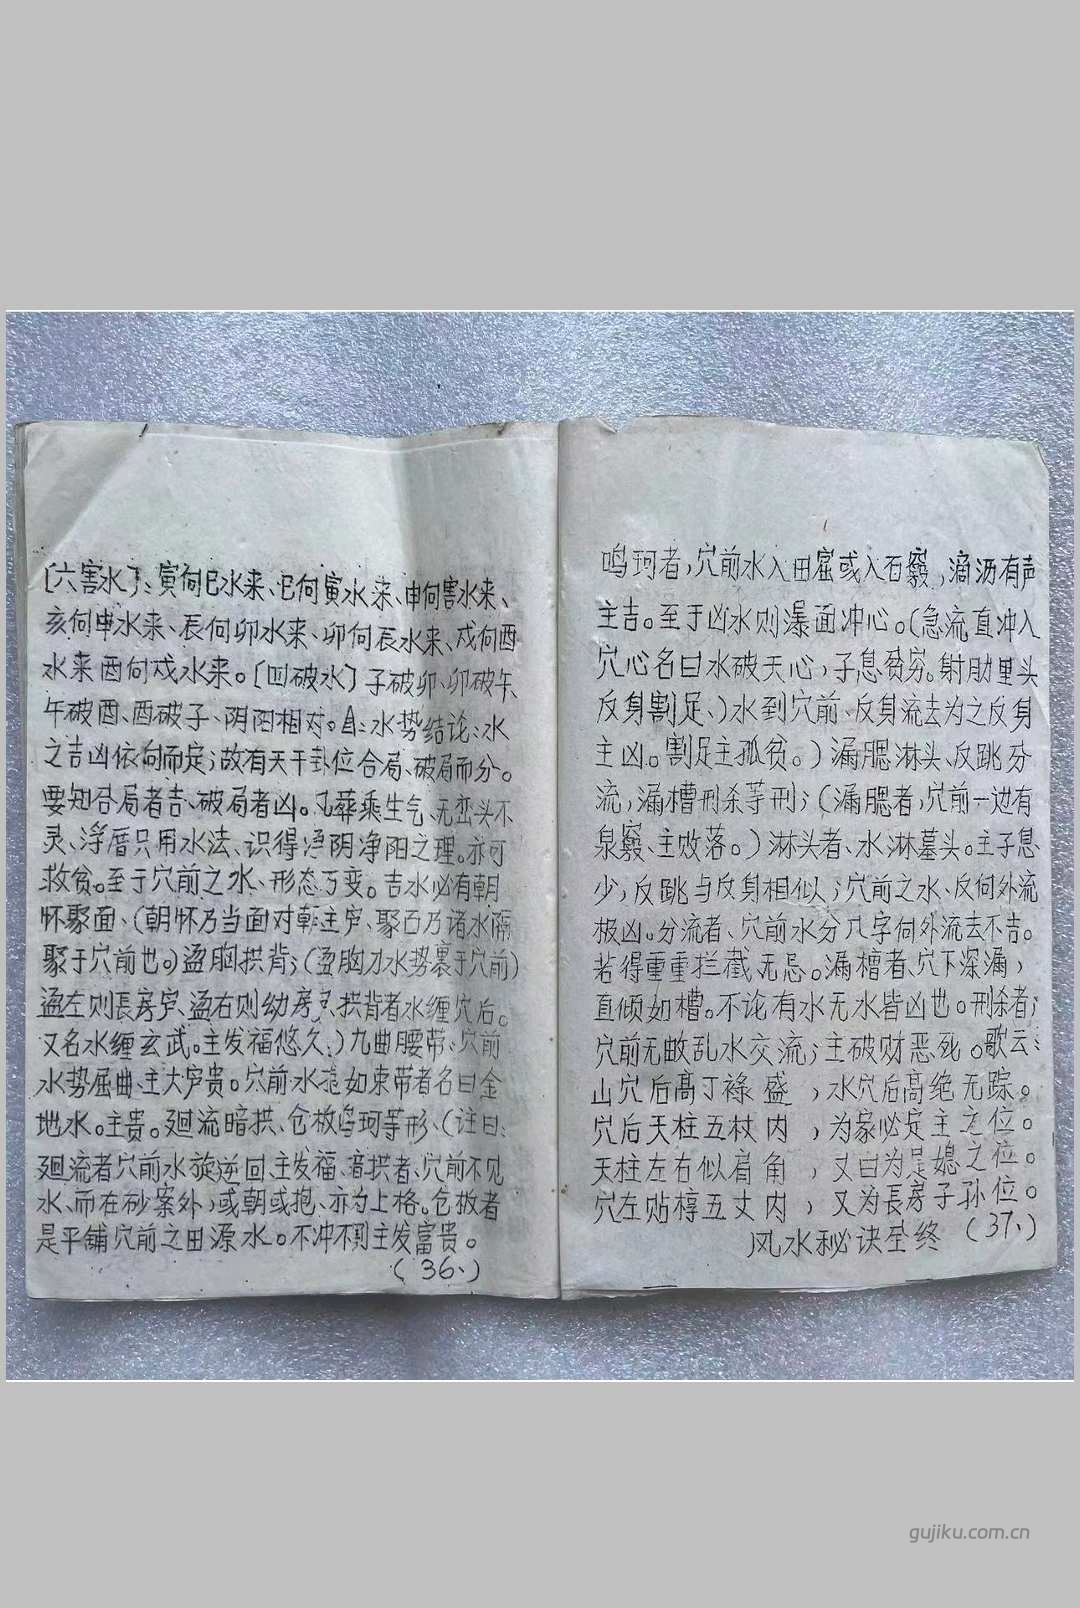 〔六害水〕：寅何巳水来、巳何寅水来、申何害水来、
亥何申水来、辰何卯水来、卯何辰水来、戍何酉
水来酉何戍水来。〔四破水〕子破卯、卯破午、
午破酉、酉破子、阴阳相对。水势结论：水
之吉凶依向而定；故有天干卦位合局、破局而分。
要知合局者吉、破局者凶。凡葬乘生气、无峦头不
灵、浮厝只用水法、识得净阴净阳之理。亦可
救贫。至于穴前之水、形态丂变。吉水必有朝
怀聚面、（朝怀乃当面对朝主庐、聚面乃诸水隔
聚于穴前也。）盪胸拱背；（盪胸乃水势裹于穴前）
盪左则長房庐、盪右则幼房，拱背者水缠穴后。
又名水缠玄武。主发福悠久、）九曲腰带、穴前
水势屈曲、主大庐贵。穴前水如束带者名曰金
地水。主贵。廻流暗拱、仓板鸣珂等形、（注曰：
廻流者穴前水旋逆回、主发福、暗拱者、穴前不见
水、而在砂案外，或朝或抱、亦为上格。仓板者
是平铺穴前之田源水。不冲不到主发富贵。
（36、）
鸣珂者，穴前水入田窟或入石竅，滴沥有声
主吉。至于凶水则瀑面冲心。（急流直冲入
穴心名曰水破天心，子息贫穷。射肋里头
反身割足、）水到穴前、反身流去为之反身
主凶。割足主孤贫。）漏腮淋头、反跳分
流，漏槽刑杀等刑；（漏腮者，穴前一边有
泉竅、主败落。）淋头者、水淋墓头。主子息
少，反跳与反身相似；穴前之水、反向外流
极凶。分流者、穴前水分八字何外流去不吉。
若得重重拦截、无忌。漏槽者、穴下深漏，
直倾如槽。不论有水无水皆凶也。刑杀者；
穴前无故乱水交流；主破财恶死。歌云：
山穴后高丁禄盛，水穴后高绝无踪。
穴后天柱五杖内，为家必定主之位。
天柱左右似肩角，又曰为是媳之位。
穴左贴椁五丈内，又为長房子孙位。
风水秘诀全终（37、）
gujiku.com.cn